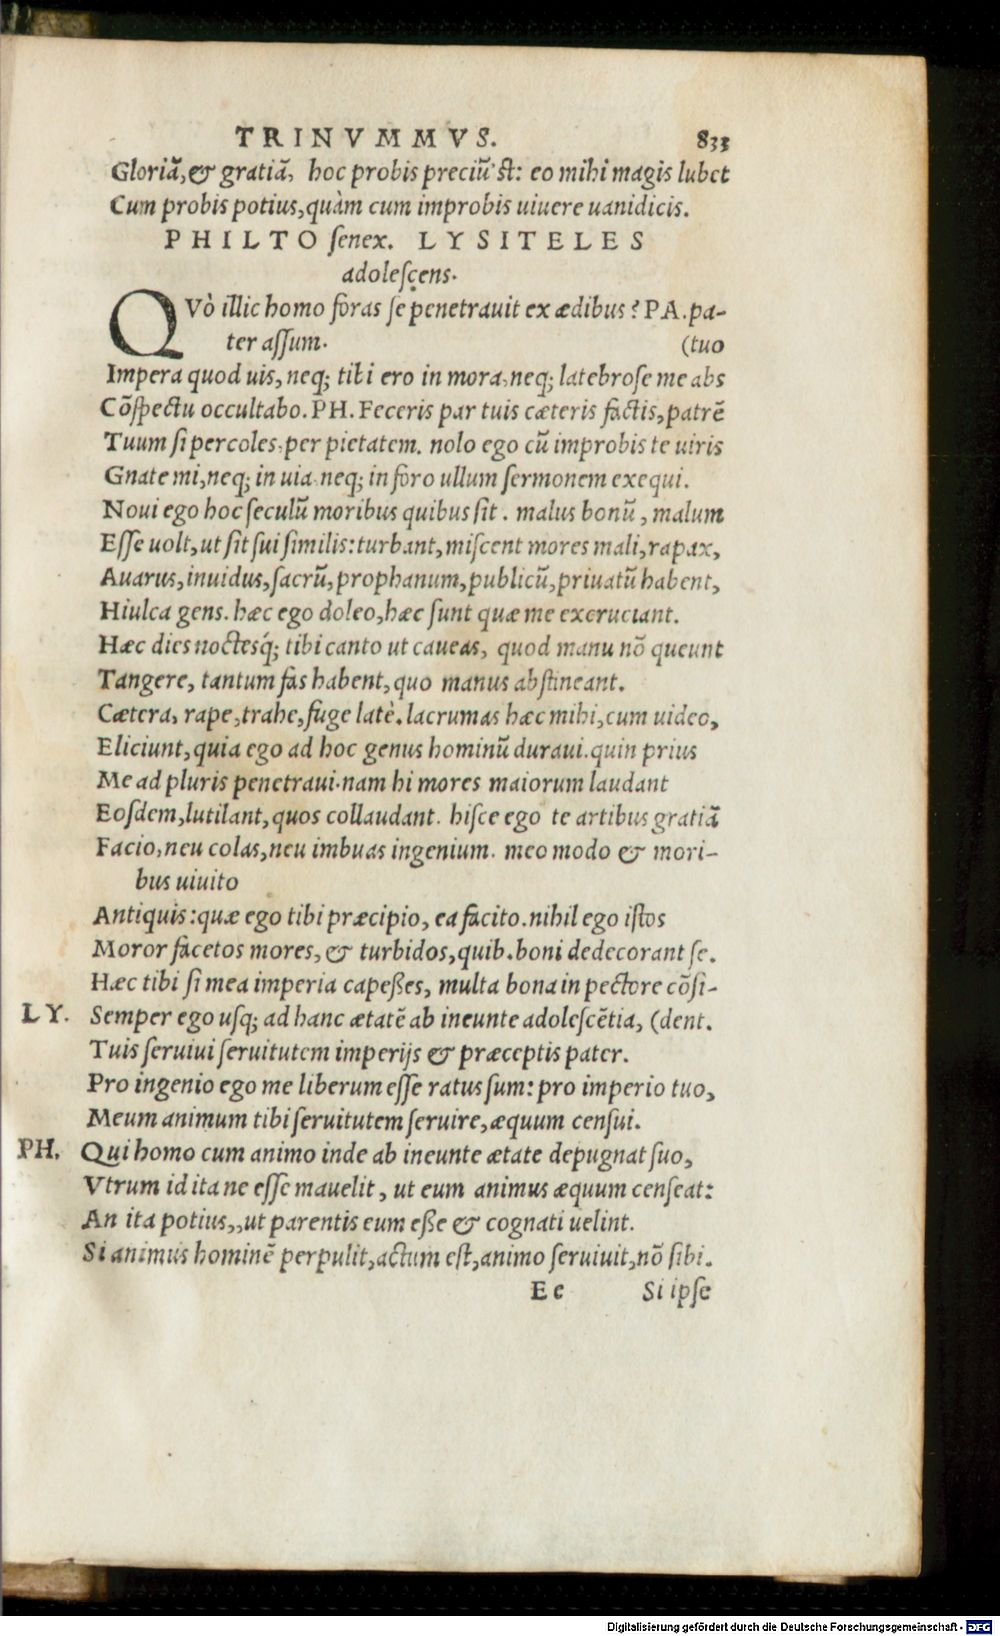 TRINVMMVS. 833
Gloriã, & gratiã, hoc probis preciũ'st: eo mihi magis lubet
Cum probis potius, quàm cum improbis uiuere uanidicis.
PHILTO senex. LYSITELES
adolescens.
QVò illic homo foras se penetrauit ex ædibus? PA. pa-
ter assum. (tuo
Impera quod uis, neq; tibi ero in mora, neq; latebrose me abs
Cõspectu occultabo. PH. Feceris par tuis cæteris factis, patrẽ
Tuum si percoles, per pietatem. nolo ego cũ improbis te uiris
Gnate mi, neq; in uia neq; in foro ullum sermonem exequi.
Noui ego hoc seculũ moribus quibus sit. malus bonũ, malum
Esse uolt, ut sit sui similis: turbant, miscent mores mali, rapax,
Auarus, inuidus, sacrũ, prophanum, publicũ, priuatũ habent,
Hiulca gens. hæc ego doleo, hæc sunt quæ me excruciant.
Hæc dies noctesq́; tibi canto ut caueas, quod manu nõ queunt
Tangere, tantum fas habent, quo manus abstineant.
Cætera, rape, trahe, fuge latè. lacrumas hæc mihi, cum uideo,
Eliciunt, quia ego ad hoc genus hominũ duraui. quin prius
Me ad pluris penetraui. nam hi mores maiorum laudant
Eosdem, lutilant, quos collaudant. hisce ego te artibus gratiã
Facio, neu colas, neu imbuas ingenium. meo modo & mori-
bus uiuito
Antiquis: quæ ego tibi præcipio, ea facito. nihil ego istos
Moror facetos mores, & turbidos, quib. boni dedecorant se.
Hæc tibi si mea imperia capeßes, multa bona in pectore cõsi-
LY. Semper ego usq; ad hanc ætatẽ ab ineunte adolescẽtia, (dent.
Tuis seruiui seruitutem imperijs & præceptis pater.
Pro ingenio ego me liberum esse ratus sum: pro imperio tuo,
Meum animum tibi seruitutem seruire, æquum censui.
PH. Qui homo cum animo inde ab ineunte ætate depugnat suo,
Vtrum id ita ne esse mauelit, ut eum animus æquum censeat:
An ita potius,, ut parentis eum eße & cognati uelint.
Si animus hominẽ perpulit, actum est, animo seruiuit, nõ sibi.
Ee Si ipse
Digitalisierung gefördert durch die Deutsche Forschungsgemeinschaft - DFG